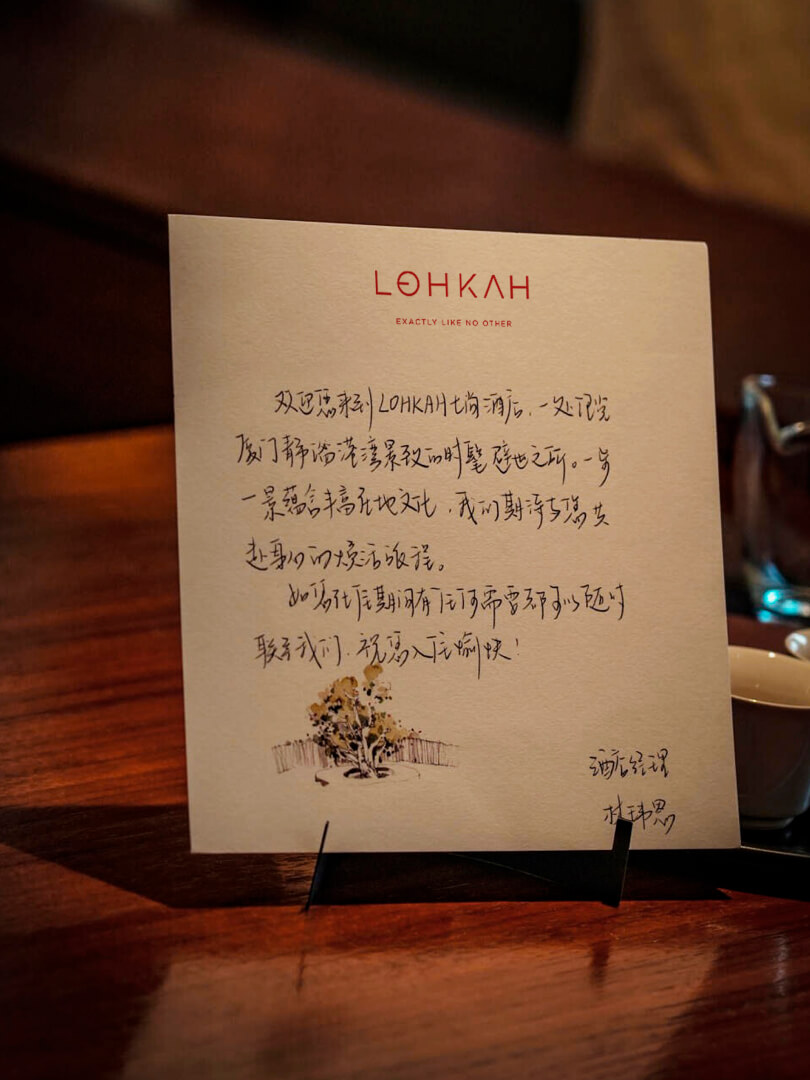 LOHKAH
EXACTLY LIKE NO OTHER
欢迎您来到LOHKAH七尚酒店，一处饱览
厦门静谧港湾景致的时髦辟地之所。一步
一景蕴含丰富在地文化，我们期待与您共
赴身心的焕活旅程。
如您在住期间有任何需要都可以随时
联系我们，祝您入住愉快！
酒店经理